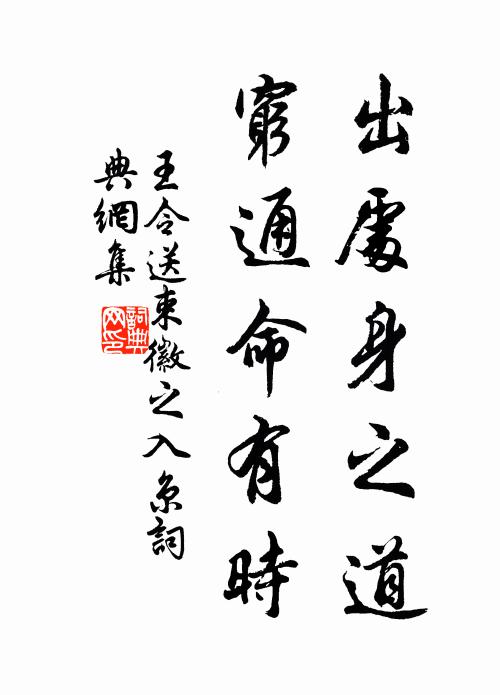 出處身之道
窮通命有時
王令送束徽之入京詞
典網集
詞典
网印